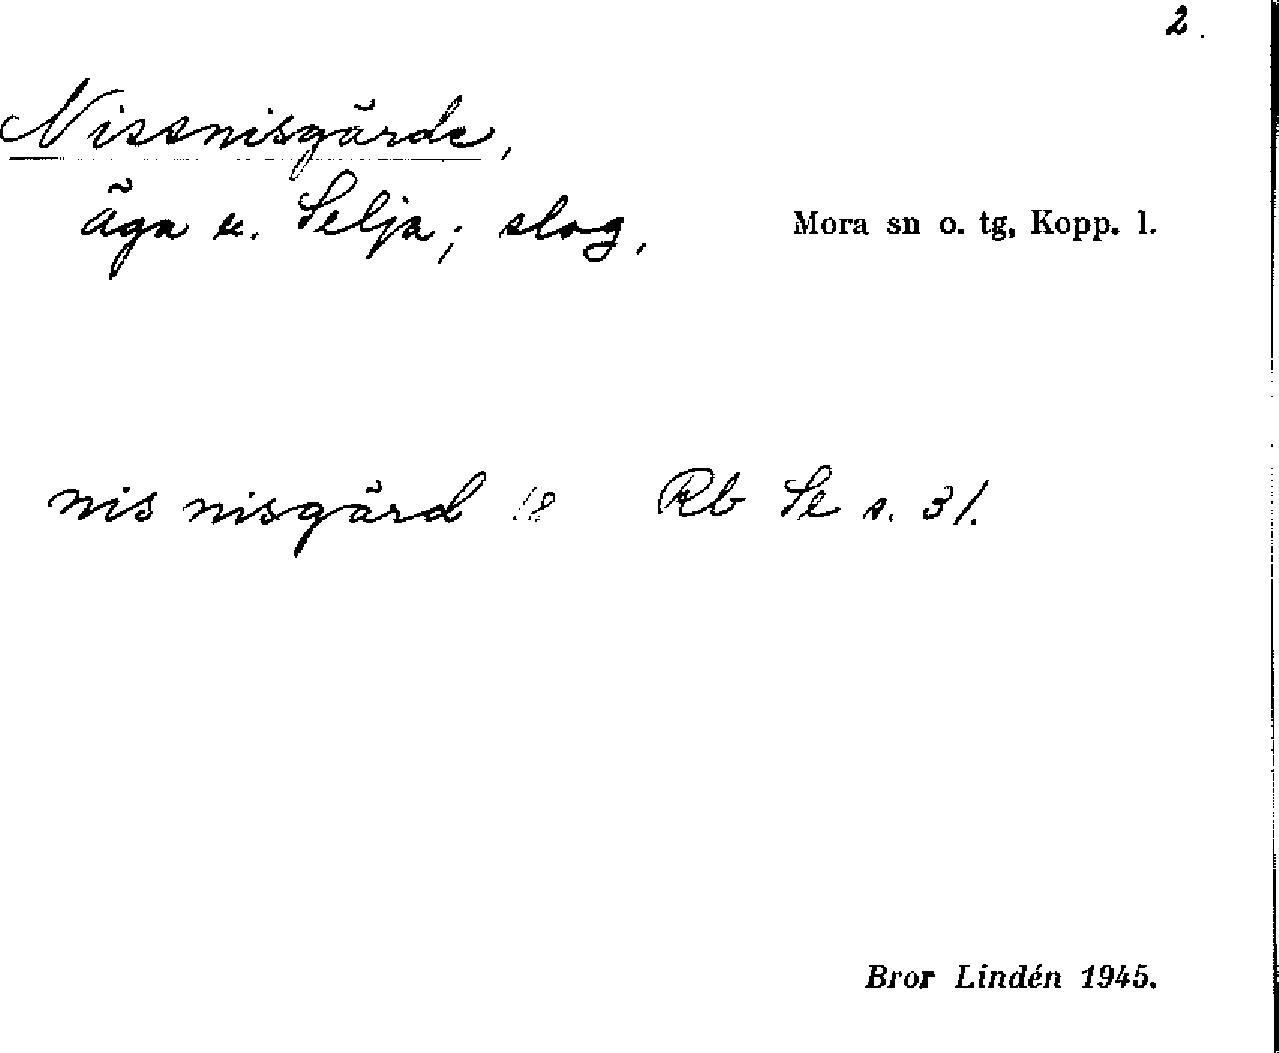 2.
Nissnisgärde,
äga u. Selja; slog,
Mora sn o. tg, Kopp. l.
nis nisgärd 18 Rb Se s. 31.
Bror Lindén 1945.